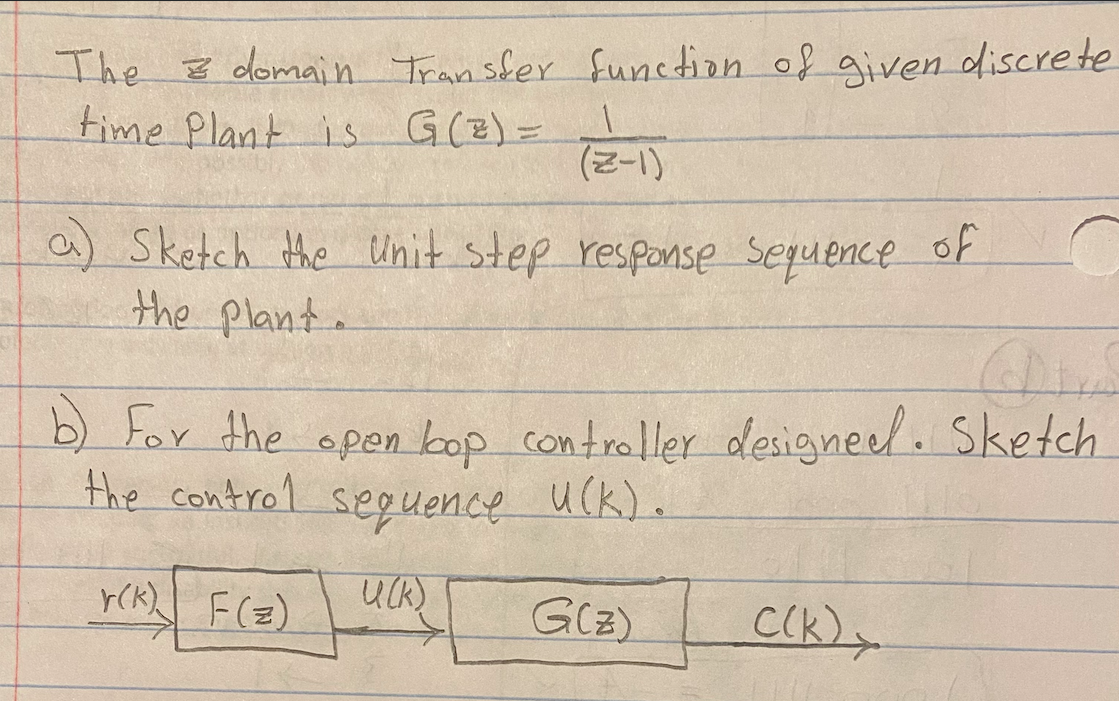 The z domain Transfer function of given discrete
time Plant is G(z) = 1/(z-1)
a) Sketch the unit step response sequence of
the plant.
b) For the open loop controller designed. Sketch
the control sequence U(k).
r(k) F(z) U(k) G(z) C(k)